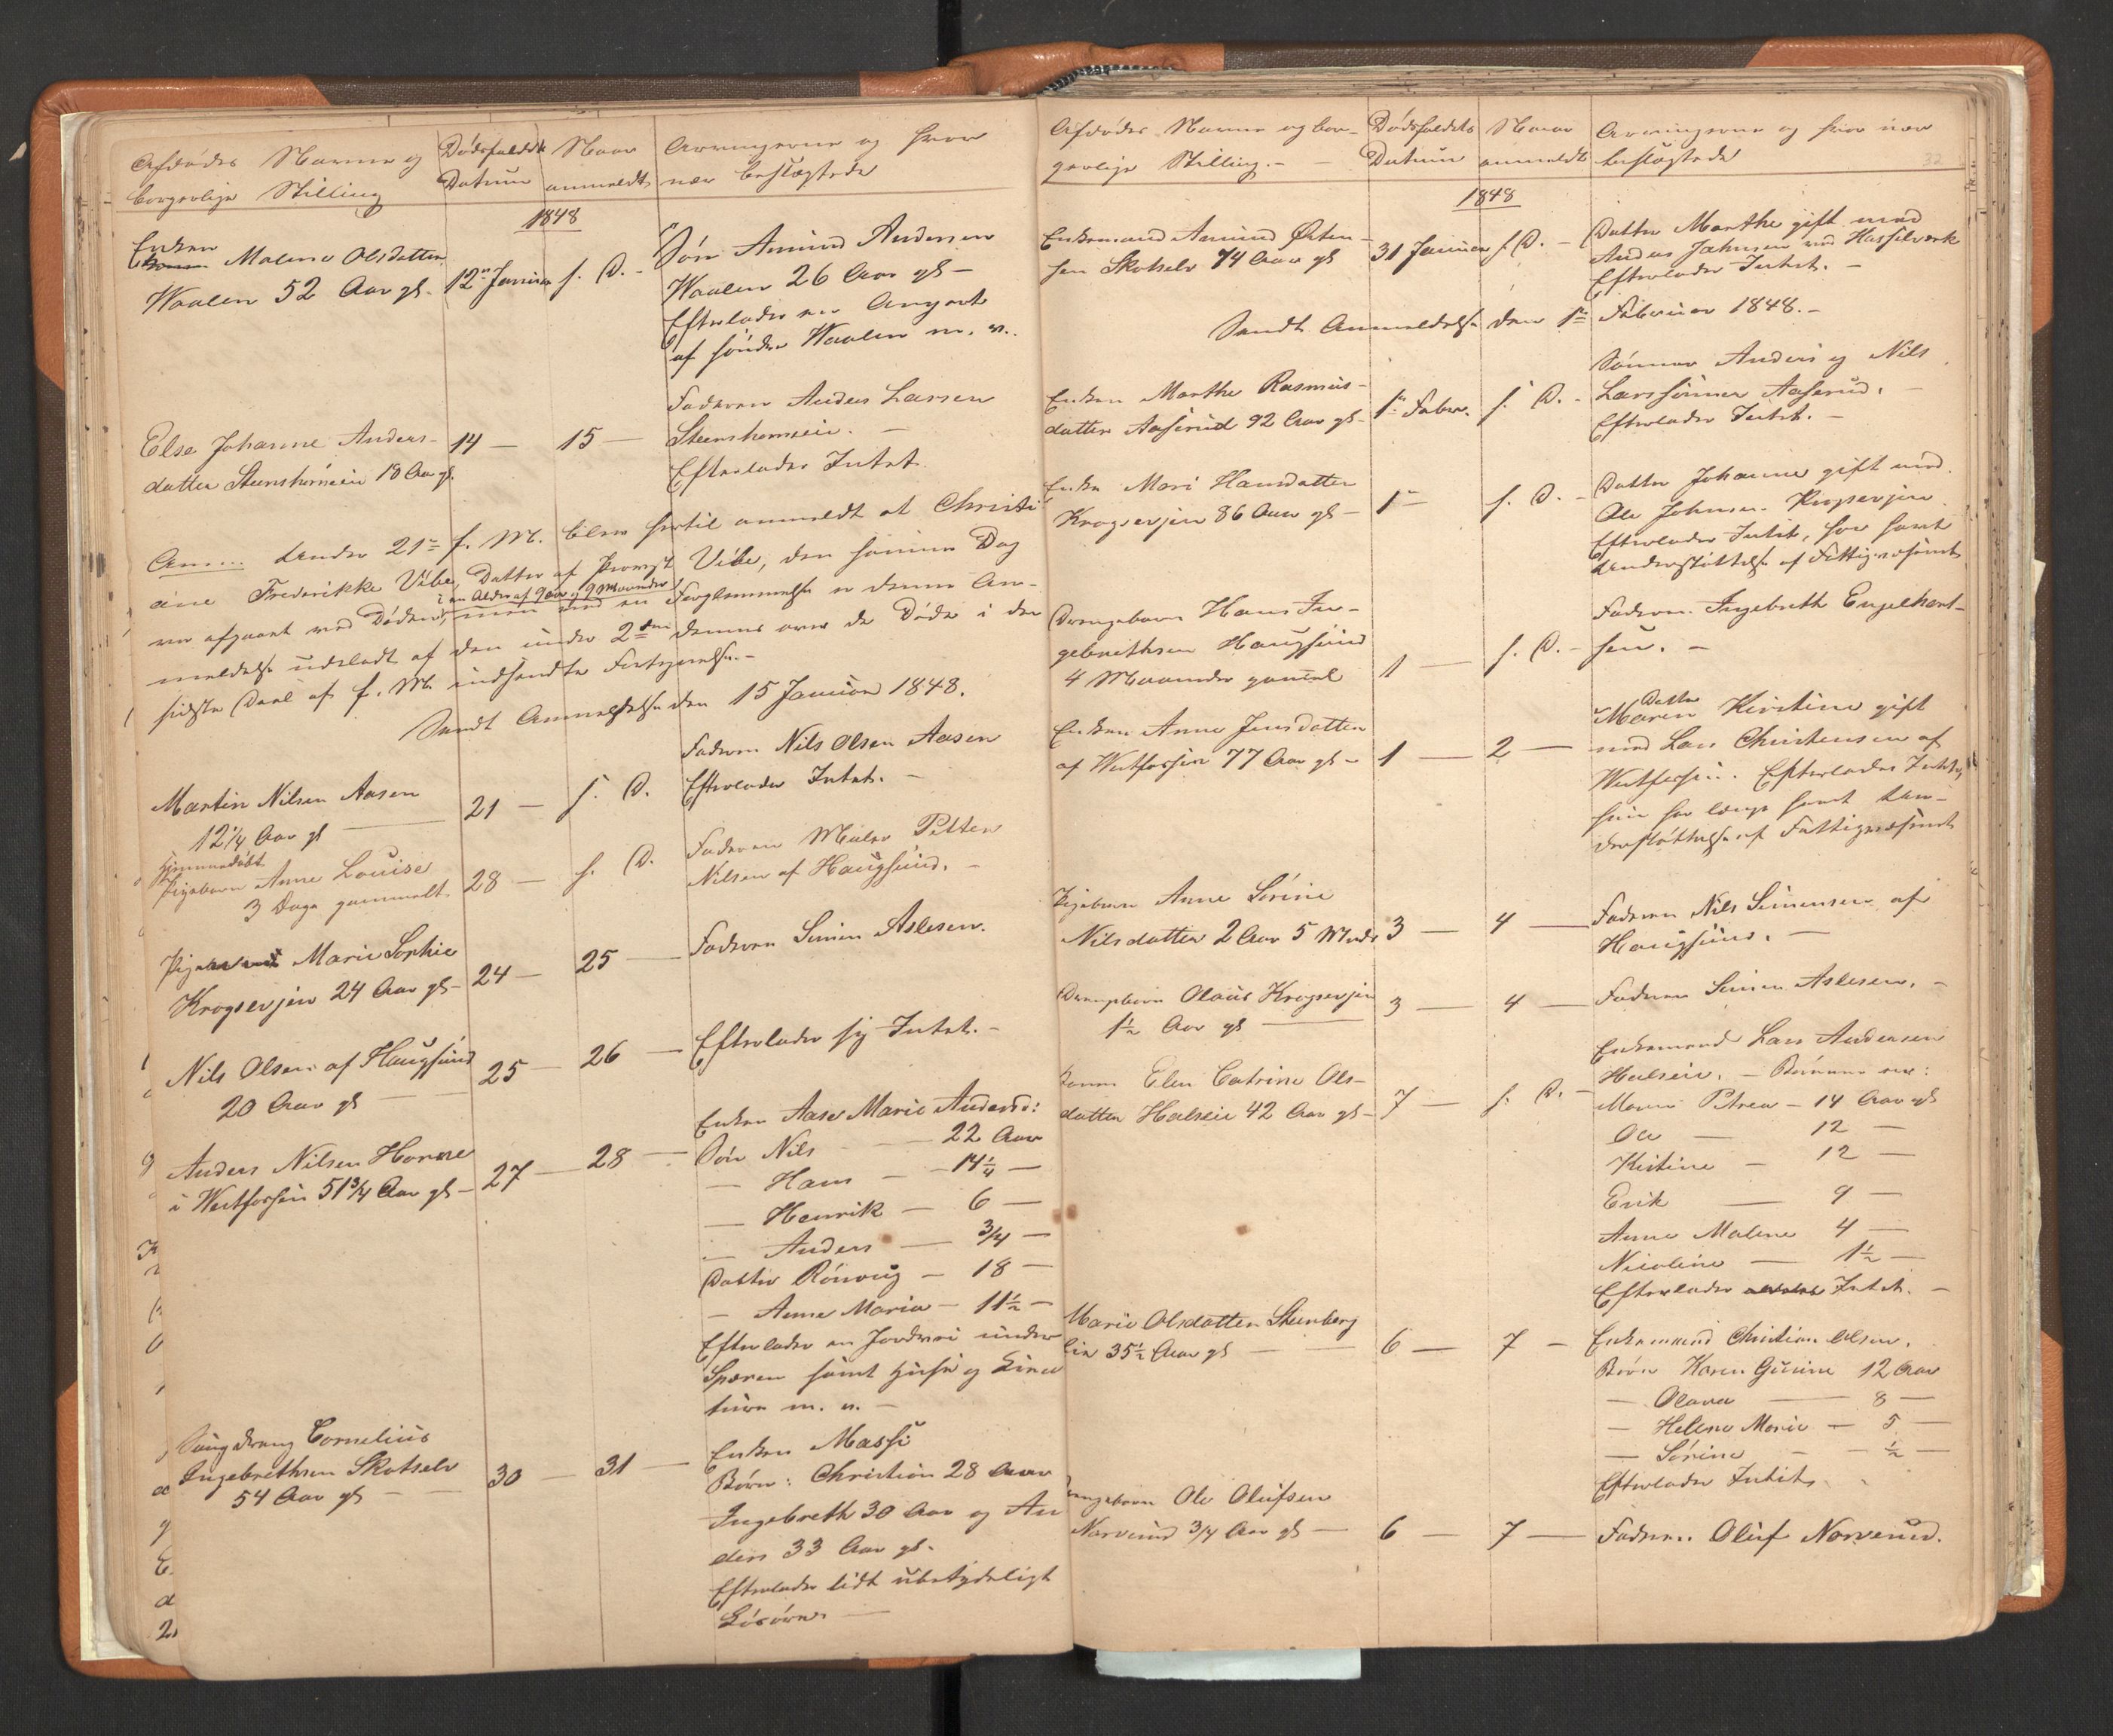 Afdødes Navne og
borgerlige Stilling
Dødsfaldets
Datum
Naar
anmeldt
Arvingerne og hvor
nær beslægtede
1848
Enken
Malene Olsdatter
Waalen 52 Aar gl.
12te Januar
s. D. -
Søn Amund Andersen
Waalen 26 Aar gl -
Efterlader en Anpart
af søndre Waalen m. v.
Else Johanne Anders-
datter Steenshorneie 18 Aar gl.
14 -
15 -
Faderen Anders Larsen
Steenshorneie. -
Efterlader Intet
Under 21de f. M. blev hertil anmeldt at Christi
ane Frederikke Vibe, Datter af Provst Vibe, den samme Dag
i en Alder af 9 Aar og 9 Maaneder
var afgaaet ved Døden, men ved en Forglemmelse er denne An-
meldelse udeladt af den under 2den dennes over de Døde i den
sidste Deel af f. M. indsendte Fortegnelse. -
Sendt Anmeldelse den 15 Januar 1848.
Martin Nilsen Aasen
12 1/4 Aar gl
21 -
s. D.
Faderen Nils Olsen Aasen
Efterlader Intet. -
Hjemmedøbt
Pigebarn Anne Louise
3 Dage gammelt.
28 -
s. D.
Faderen Maler Petter
Nilsen af Haugsund. -
Marie Sophie
Krogsevjen 24 Aar gl -
24 -
25 -
Faderen Simen Aslesen.
Nils Olsen af Haugsund
20 Aar gl
25 -
26 -
Efterlader sig Intet. -
Anders Nilsen Horne
i Westfossen 51 3/4 Aar gl -
27 -
28 -
Enken Aase Marie Andersd:
Søn Nils - 22 Aar
- Hans - 14 1/4 -
- Henrik - 6 -
- Anders - 3/4 -
Datter Rønnaug - 18 -
- Anne Maria - 11 1/2 -
Efterlader en Jordvei under
Speren samt Huse og
m. v. -
Cornelius
Ingebrethsen Skotselv
54 Aar gl
30 -
31 -
Enken Massi
Børn: Christian 28 Aar
Ingebreth 30 Aar og An
ders 33 Aar gl.
Efterlader lidt ubetydeligt
Løsøre -
Afdødes Navne og bor-
gerlige Stilling. -
Dødsfaldets
Datum
Naar
anmeldt
Arvingerne og hvor nær
beslægtede
32
1848
Enkemand Amund Østen-
sen Skotselv 74 Aar gl
31 Januar
s. D. -
Datter Marthe gift med
Anders Johnsen ved Hasselverk
Efterlader Intet. -
Sendt Anmeldelse den 1te Februar 1848. -
Enken Marthe Rasmus-
datter Aaserud 92 Aar gl -
1te Febr.
s. D. -
Sønner Anders og Nils
Larssønner Aaserud. -
Efterlader Intet. -
Enken Mari Hansdatter
Krogsevjen 86 Aar gl -
1te
s. D. -
Datter Johanne gift med
Ole Johnsen Krogsevjen
Efterlader Intet, har havt
Understøttelse af Fattigvæsenet
Drengebarn Hans In-
gebrethsen Haugsund
4 Maaneder gammel
1 -
s. D. -
Faderen Ingebreth Engelhart-
sen. -
Enken Anne Jensdatter
af Westfossen 77 Aar gl -
1 -
2 -
Datter
Maren Kirstine gift
med Lars Christensen af
Westfossen. Efterlader Intet,
hun har længe havt Un-
derstøttelse af Fattigvæsenet
Pigebarn Anne Sørine
Nilsdatter 2 Aar 5 Mndr
3 -
4 -
Faderen Nils Simensen af
Haugsund. -
Drengebarn Olaus Krogsevjen
1 1/2 Aar gl
3 -
4 -
Faderen Simen Aslesen. -
Konen Elen Catrine Ols-
datter Halseie 42 Aar gl -
7 -
s. D. -
Enkemand Lars Andersen
Halseie. - Børnene ere:
Maren Petrea - 14 Aar gl
Ole - 12 -
Kistine - 12 -
Erik - 9 -
Anne Malene 4 -
Nicoline - 1 1/2 -
Efterlader Intet. -
Marie Olsdatter Steenberg
eie 35 1/2 Aar gl
6 -
7 -
Enkemand Christian Olsen.
Børn Karen Gurine 12 Aar
- Olava - 8 -
- Helene Marie - 5 -
- Sørine - 1/2 -
Efterlader Intet.
Drengebarn Ole Olufsen
Narverud 3/4 Aar gl -
6 -
7 -
Faderen Oluf Narverud.